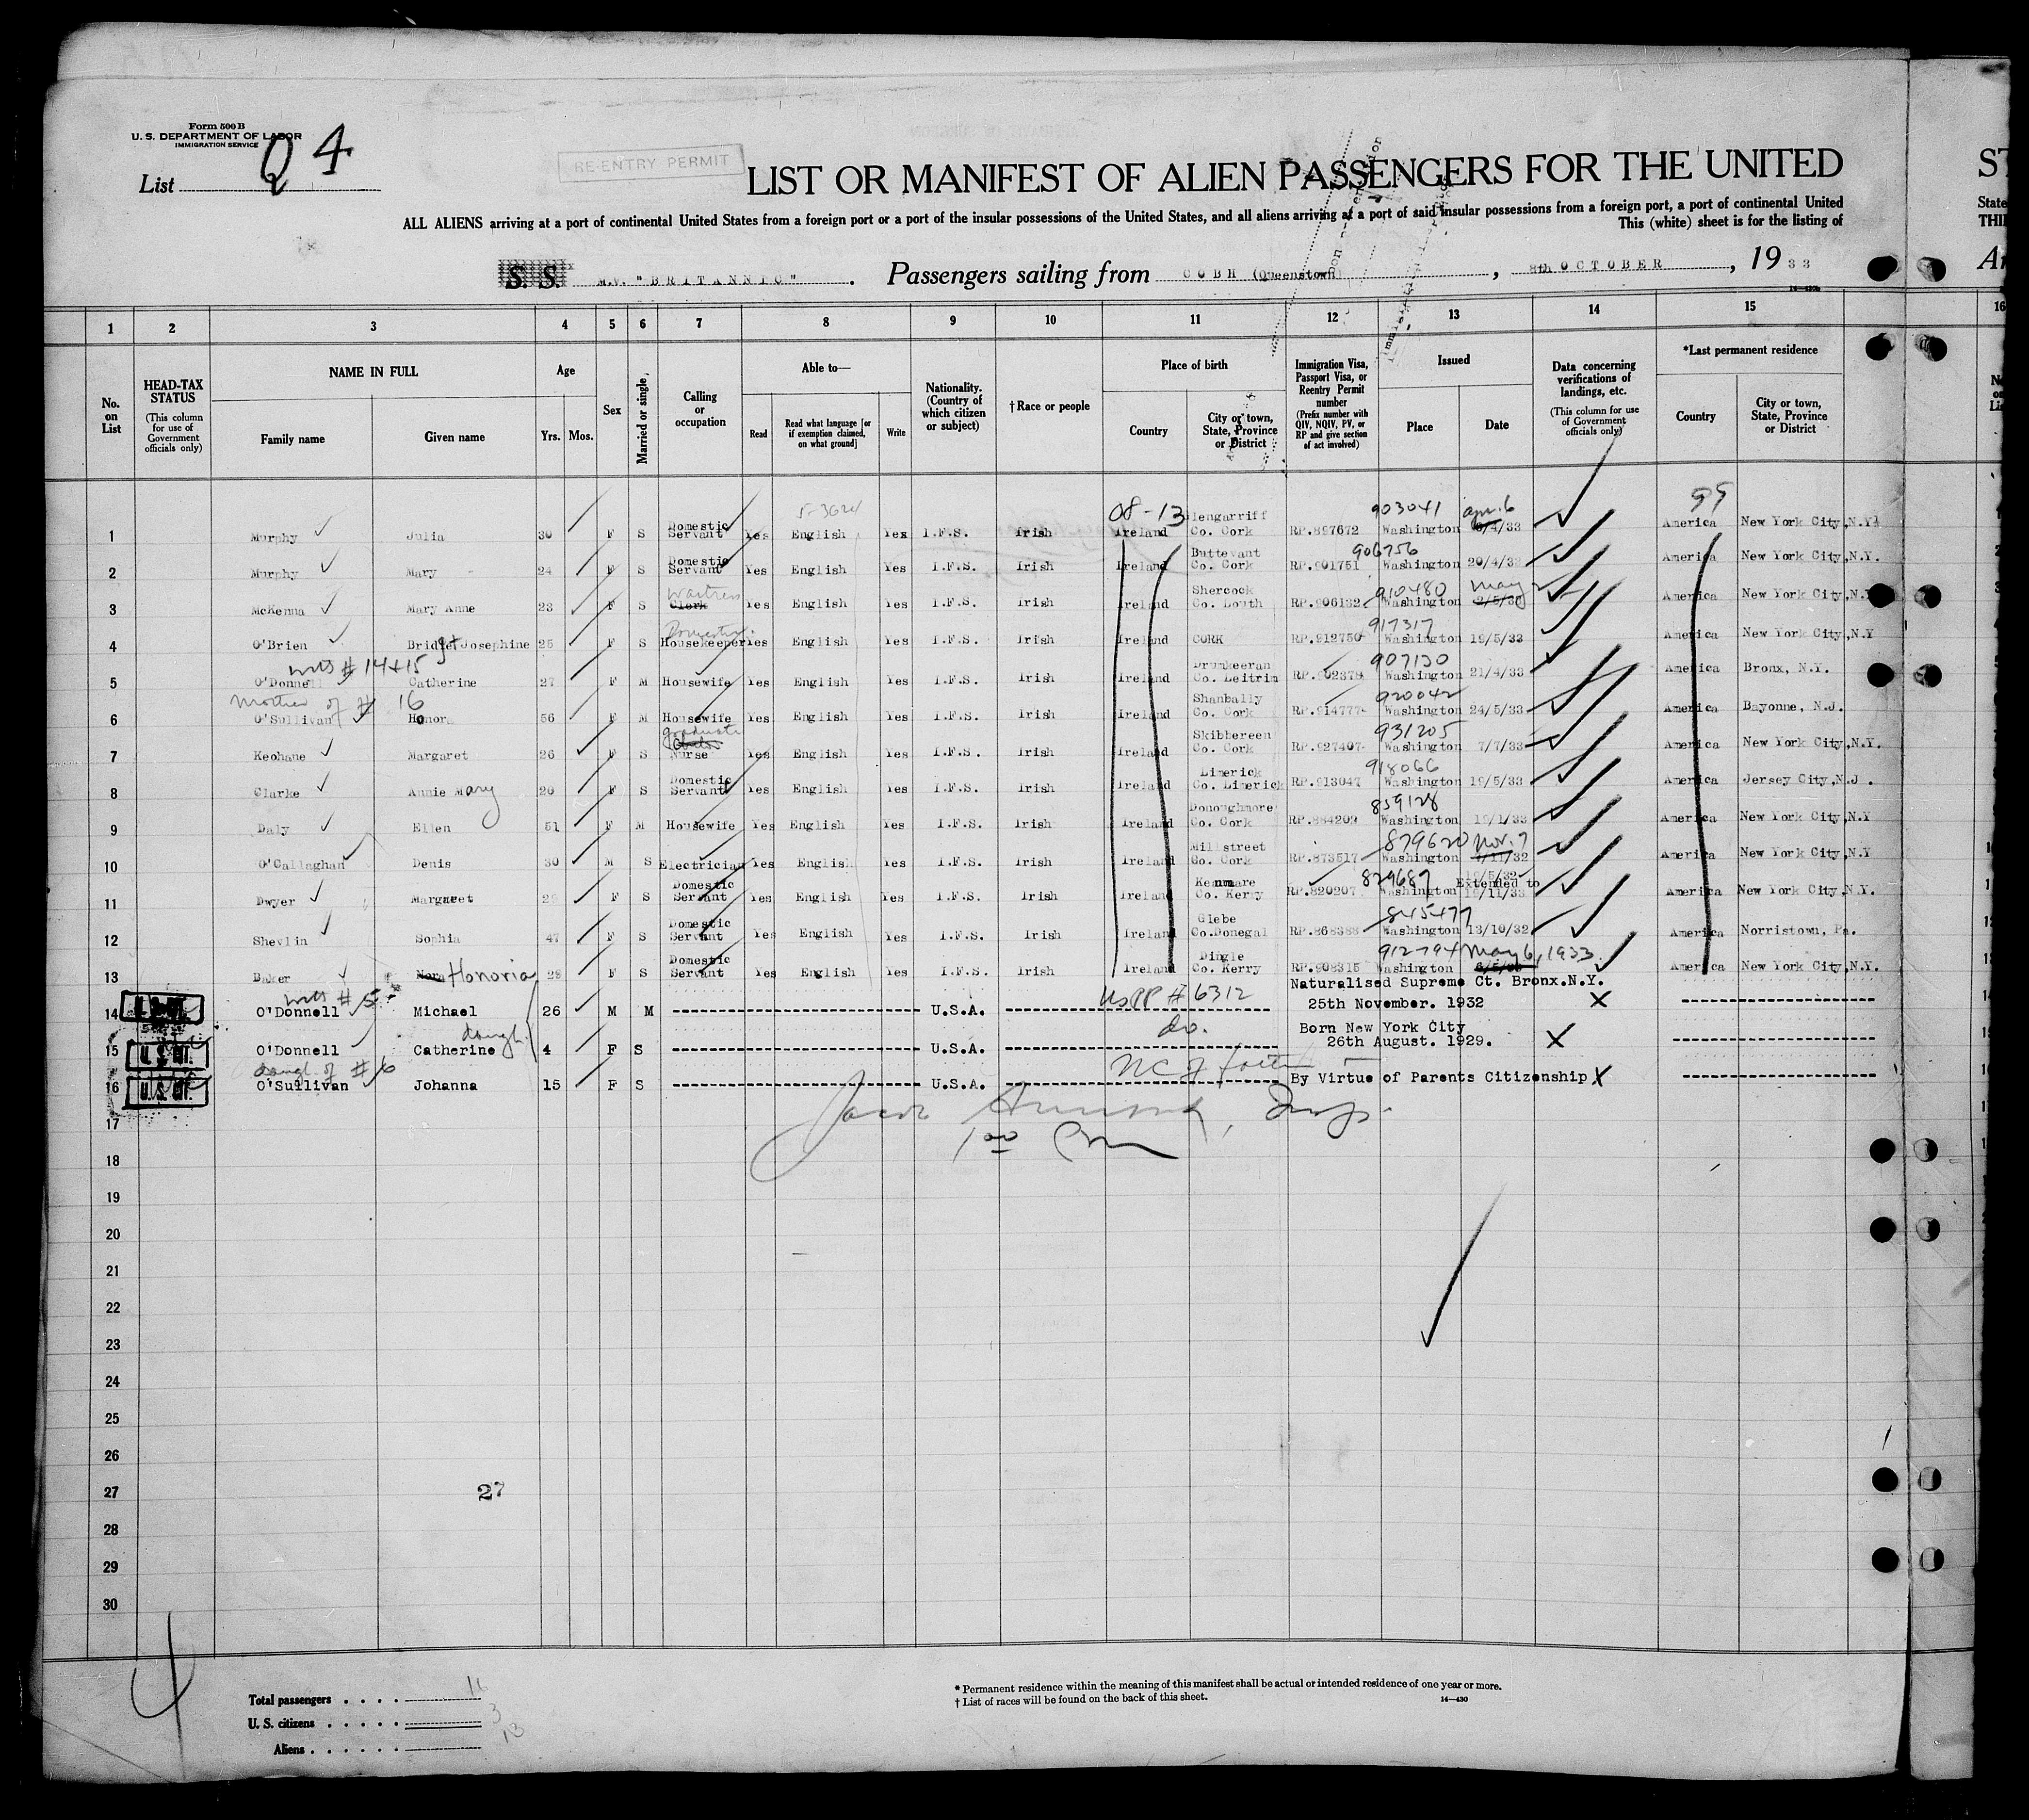 Form 500 B
U. S. DEPARTMENT OF LABOR
IMMIGRATION SERVICE
List Q 4
RE-ENTRY PERMIT
LIST OR MANIFEST OF ALIEN PASSENGERS FOR THE UNITED
ST
ALL ALIENS arriving at a port of continental United States from a foreign port or a port of the insular possessions of the United States, and all aliens arriving at a port of said insular possessions from a foreign port, a port of continental United
State
This (white) sheet is for the listing of
THI
S. S. M.V. "BRITANNIC". Passengers sailing from COBH (Queenstown), 8th OCTOBER, 1933
14—430b
1 2 3 4 5 6 7 8 9 10 11 12 13 14 15 16
No. on List
HEAD-TAX STATUS (This column for use of Government officials only)
NAME IN FULL Family name Given name
Age Yrs. Mos.
Sex
Married or single
Calling or occupation
Able to— Read Read what language [or if exemption claimed, on what ground] Write
Nationality. (Country of which citizen or subject)
† Race or people
Place of birth Country City or town, State, Province or District
Immigration Visa, Passport Visa, or Reentry Permit number (Prefix number with QIV, NQIV, PV, or RP and give section of act involved)
Issued Place Date
Data concerning verifications of landings, etc. (This column for use of Government officials only)
*Last permanent residence Country City or town, State, Province or District
5-3024 08-13 903041 Apr. 6 99
1 Murphy Julia 30 F S Domestic Servant Yes English Yes I.F.S. Irish Ireland Glengarriff Co. Cork RP.897672 Washington 6/4/33 America New York City, N.Y.
906756
2 Murphy Mary 24 F S Domestic Servant Yes English Yes I.F.S. Irish Ireland Buttevant Co. Cork RP.901751 Washington 20/4/33 America New York City, N.Y.
Waitress 910480 May 2
3 McKenna Mary Anne 23 F S Clerk Yes English Yes I.F.S. Irish Ireland Shercock Co. Louth RP.906132 Washington 2/5/33 America New York City, N.Y.
Domestic 917317
4 O'Brien Bridget Josephine 25 F S Housekeeper Yes English Yes I.F.S. Irish Ireland CORK RP.912750 Washington 19/5/33 America New York City, N.Y
with # 14+15 907130
5 O'Donnell Catherine 27 F M Housewife Yes English Yes I.F.S. Irish Ireland Drumkeeran Co. Leitrim RP.902379 Washington 21/4/33 America Bronx, N.Y.
Mother of # 16 920042
6 O'Sullivan Honora 56 F M Housewife Yes English Yes I.F.S. Irish Ireland Shanbally Co. Cork RP.914777 Washington 24/5/33 America Bayonne, N.J.
graduate 931205
7 Keohane Margaret 26 F S Nurse Yes English Yes I.F.S. Irish Ireland Skibbereen Co. Cork RP.927407 Washington 7/7/33 America New York City, N.Y.
918066
8 Clarke Annie Mary 20 F S Domestic Servant Yes English Yes I.F.S. Irish Ireland Limerick Co. Limerick RP.913047 Washington 19/5/33 America Jersey City, N.J.
859128
9 Daly Ellen 51 F M Housewife Yes English Yes I.F.S. Irish Ireland Donoughmore Co. Cork RP.884209 Washington 19/1/33 America New York City, N.Y
879620 Nov. 7
10 O'Callaghan Denis 30 M S Electrician Yes English Yes I.F.S. Irish Ireland Millstreet Co. Cork RP.873517 Washington 7/11/32 America New York City, N.Y
829687 19/5/32
11 Dwyer Margaret 29 F S Domestic Servant Yes English Yes I.F.S. Irish Ireland Kenmare Co. Kerry RP.820207 Washington Extended to 19/11/33 America New York City, N.Y.
845477
12 Shevlin Sophia 47 F S Domestic Servant Yes English Yes I.F.S. Irish Ireland Glebe Co.Donegal RP.868388 Washington 13/10/32 America Norristown, Pa.
912794 May 6, 1933
13 Baker Nora Honoria 29 F S Domestic Servant Yes English Yes I.F.S. Irish Ireland Dingle Co. Kerry RP.908315 Washington 6/5/33 America New York City, N.Y.
with # 5 US PP # 6312 Naturalised Supreme Ct. Bronx.N.Y.
14 U.S. CIT. O'Donnell Michael 26 M M U.S.A. 25th November. 1932 X
daugh. do. Born New York City
15 U.S. CIT. O'Donnell Catherine 4 F S U.S.A. 26th August. 1929. X
daugh of # 6 NC of father
16 U.S. CIT. O'Sullivan Johanna 15 F S U.S.A. By Virtue of Parents Citizenship X
17
18
19
20
21
22
23
24
25
26
27 27
28
29
30
Total passengers 16
U. S. citizens 3
Aliens 13
* Permanent residence within the meaning of this manifest shall be actual or intended residence of one year or more.
† List of races will be found on the back of this sheet.
14—430